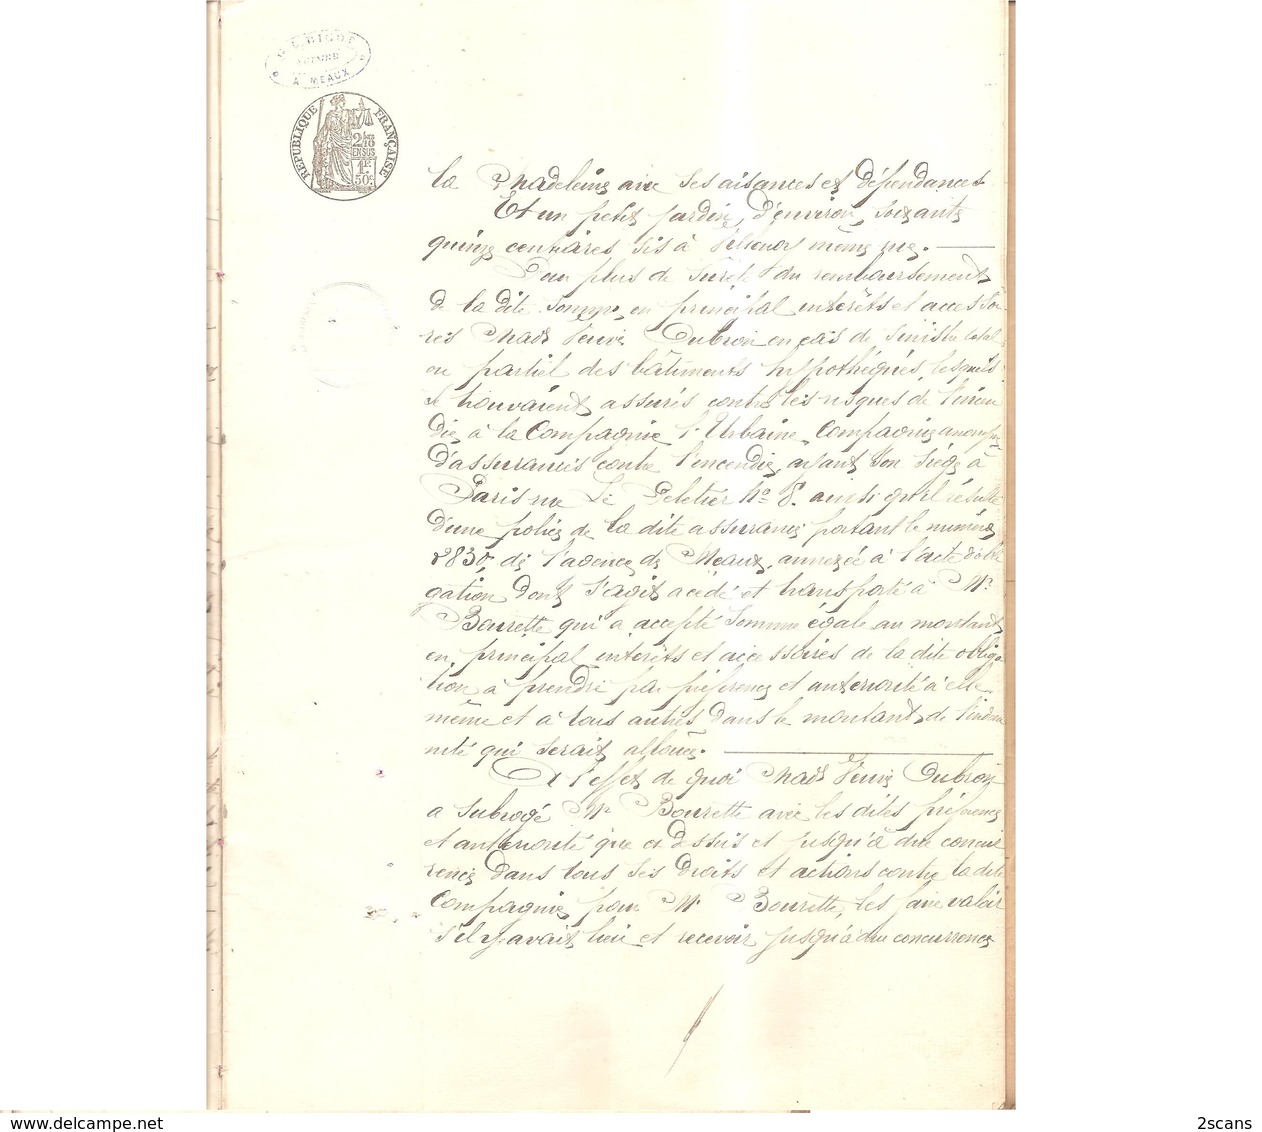 NOTAIRE
A MEAUX
RÉPUBLIQUE FRANÇAISE
2/10
EN SUS
1F.
50C.
la Madeleine avec ses aisances et dépendances
Et un petit jardin, d'environ, soixante
quinze centiares sis à même rue.
Pour plus de sureté du remboursement
de la dite somme, en principal intérêts et accessoi
res Made Veuve Dubron en cas de sinistre total
ou partiel des bâtiments hypothéqués, lesquels
se trouvaient assurés contre les risques de l'incen
die, à la Compagnie l'Urbaine, Compagnie anonyme
d'assurances contre l'incendie, ayant son siège à
Paris rue Le Peletier No 8. ainsi qu'il résulte
d'une police de la dite assurance portant le numéro
2830, de l'agence de Meaux, annexée à l'acte d'obli
gation dont s'agit a cédé et transporté à Mr
Bourette qui a accepté somme égale au montant
en principal intérêts et accessoires de la dite obliga
tion à prendre par préférence et antériorité à elle
même et à tous autres dans le montant de l'indem
nité qui serait allouée.
A l'effet de quoi Made Veuve Dubron
a subrogé Mr Bourette avec les dites préférence
et antériorité que ci dessus et jusqu'à due concur
rence dans tous ses droits et actions contre la dite
Compagnie pour Mr Bourette, les faire valoir
s'il y avait lieu et recevoir jusqu'à due concurrence
2scans